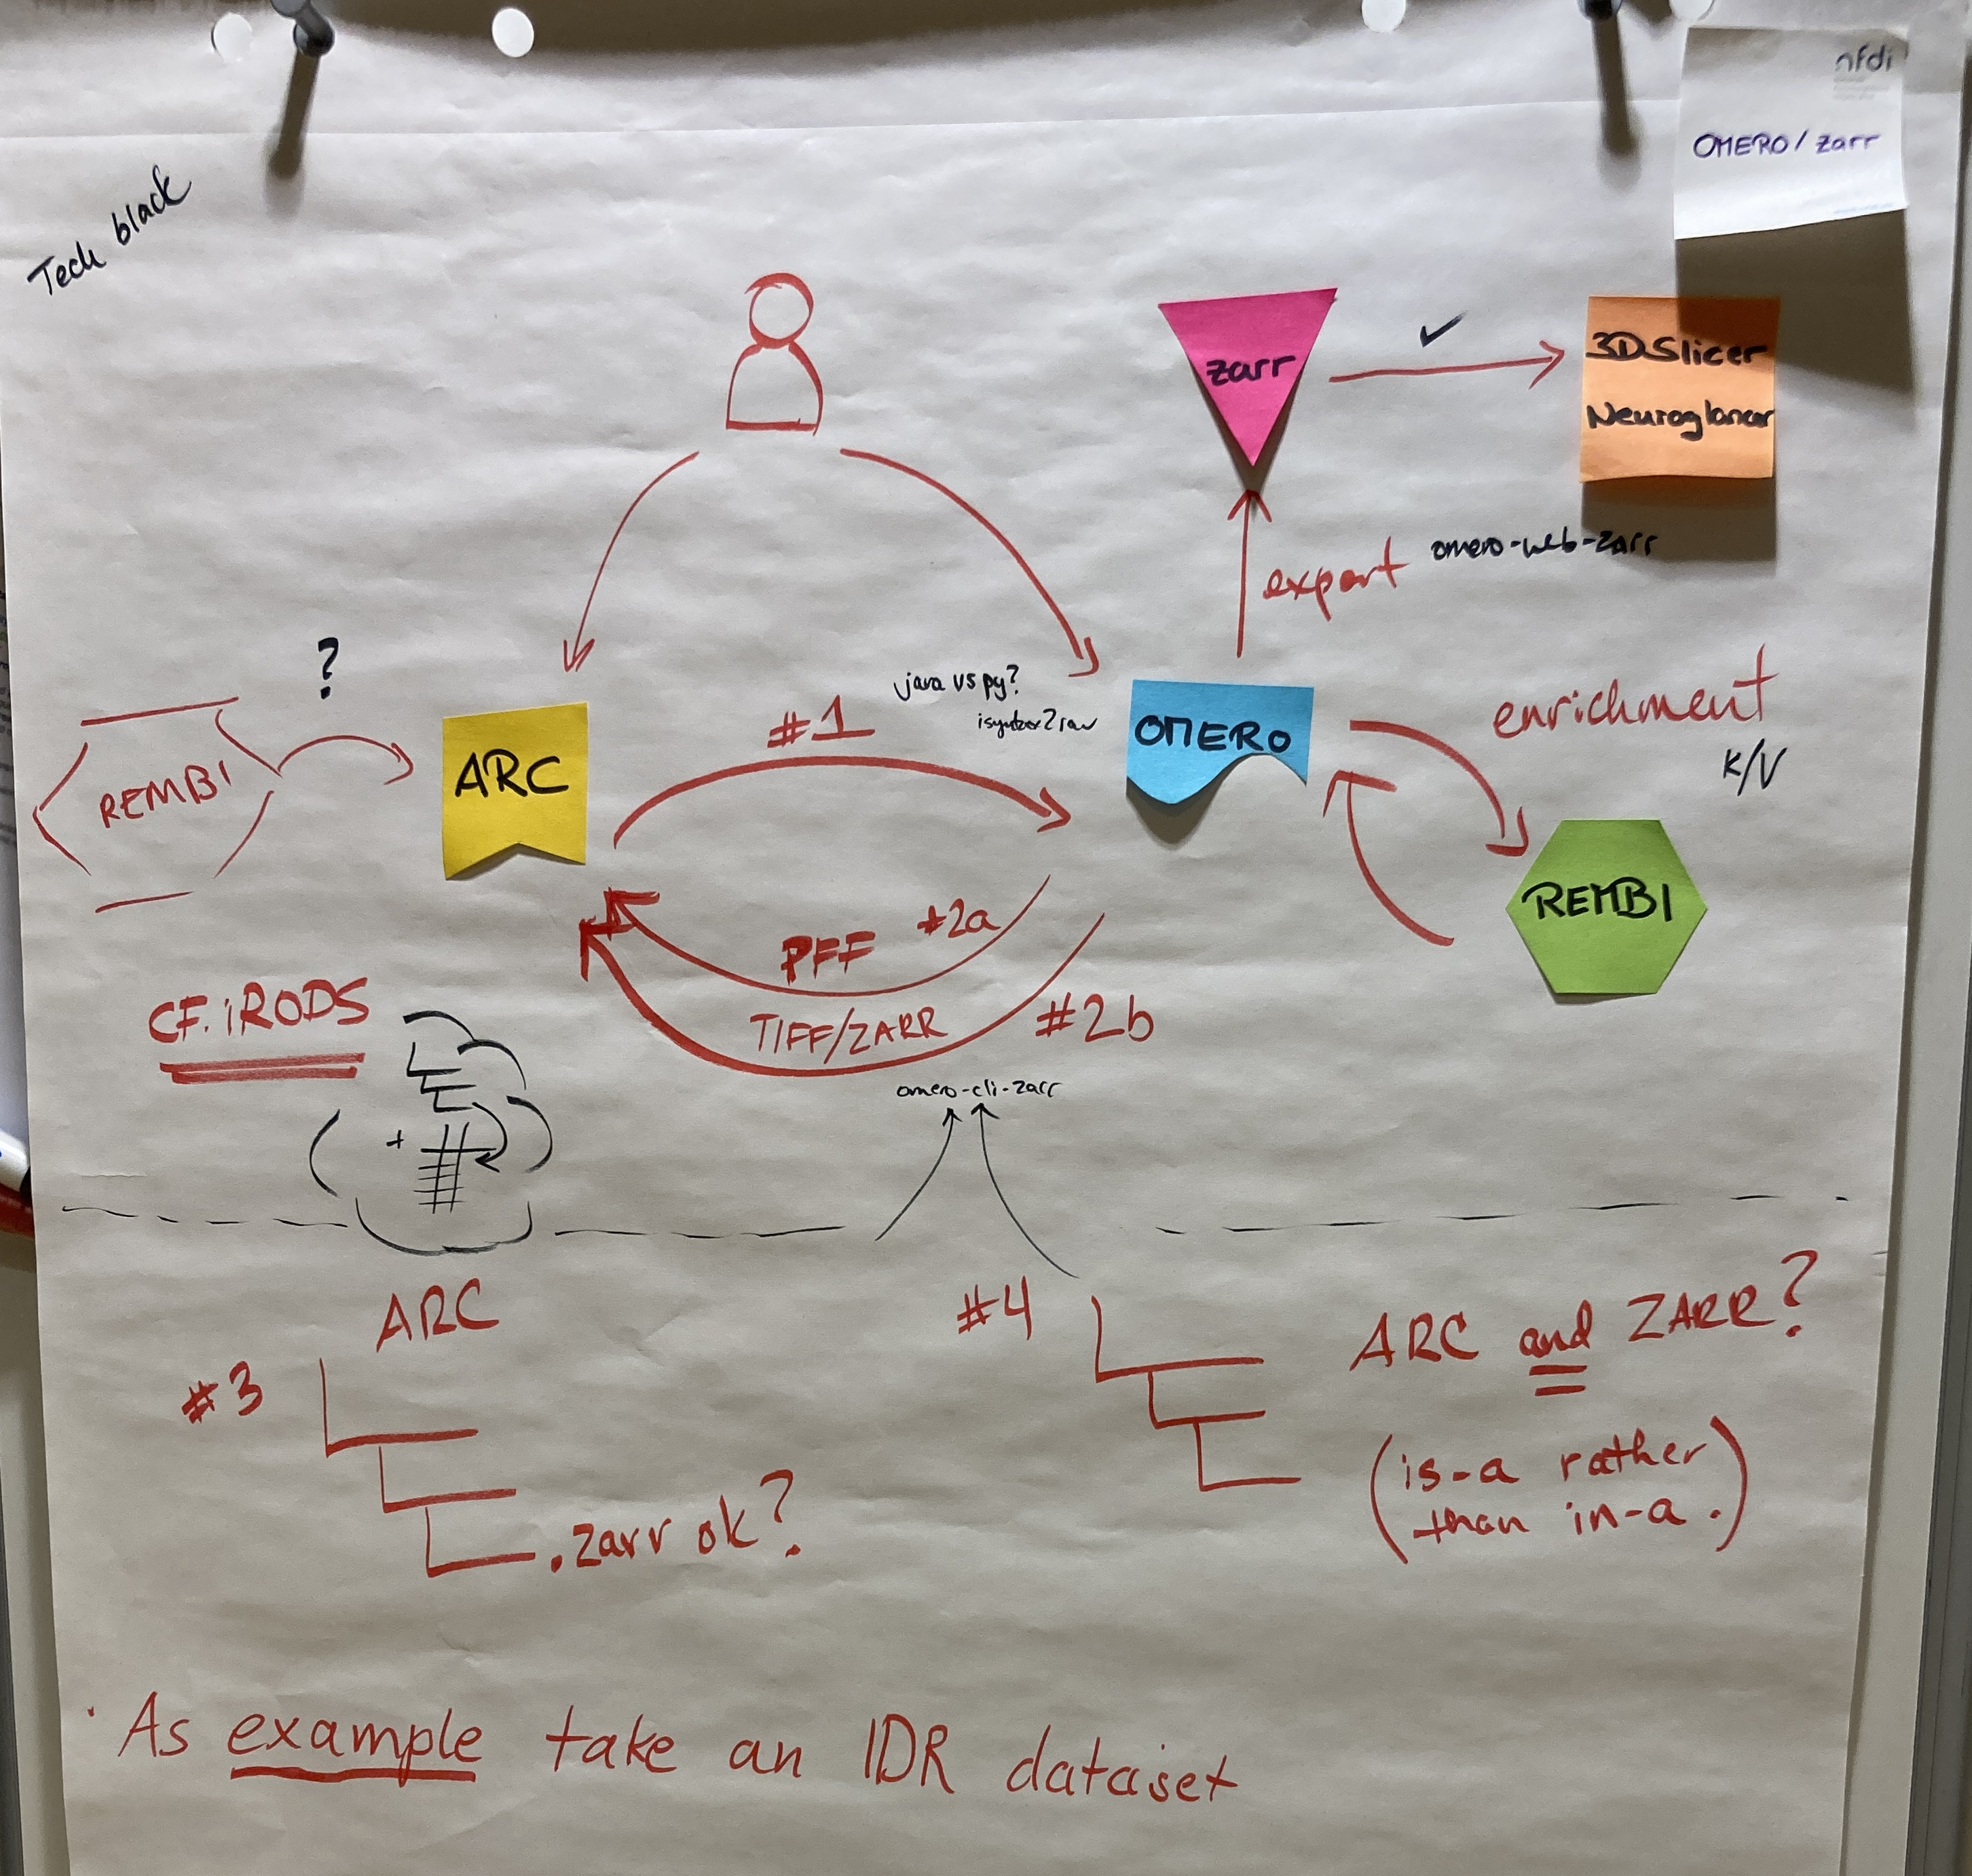 nfdi
OMERO/zarr
Tech black
zarr
✓
3DSlicer
Neuroglancer
export
omero-web-zarr
?
REMBI
ARC
#1
java vs py?
OMERO
enrichment
K/V
REMBI
PFF
#2a
TIFF/ZARR
#2b
CF. iRODS
omero-cli-zarr
+
ARC
#3
.zarr ok?
#4
ARC and ZARR?
(is-a rather
than in-a.)
· As example take an IDR dataset